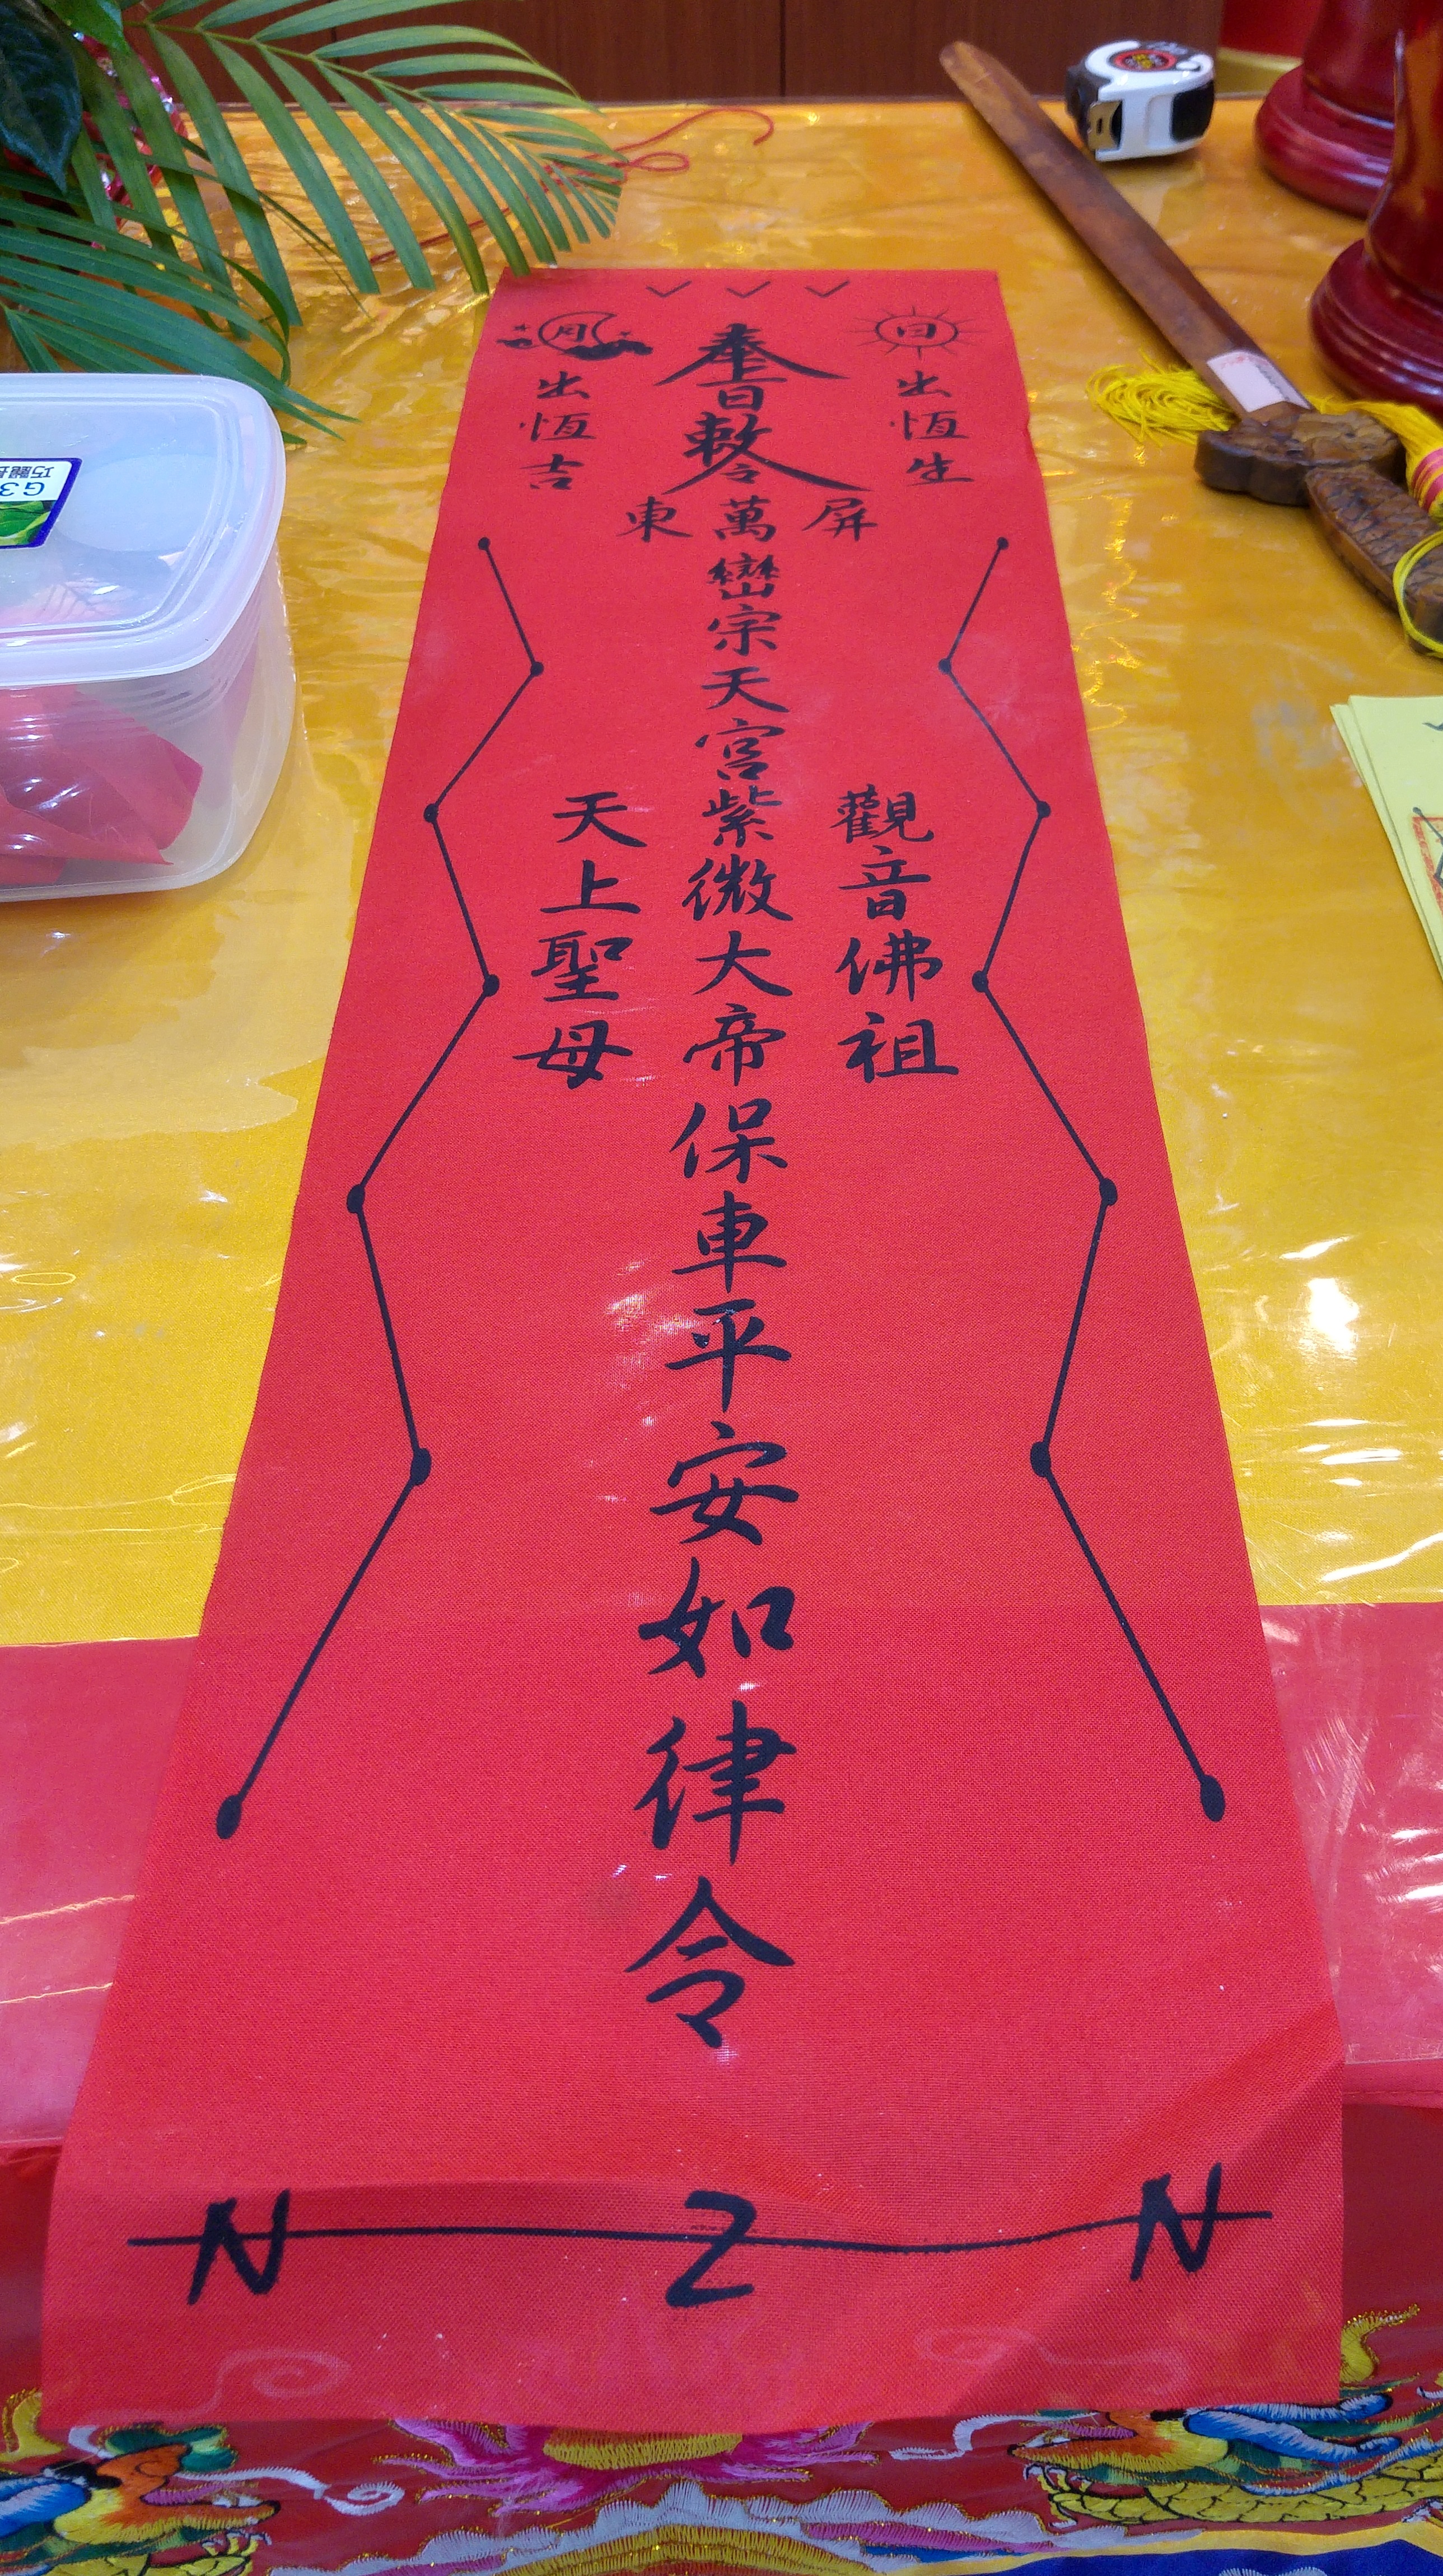 日出恆生
奉旨敕令
屏東萬巒宗天宮紫微大帝保車平安如律令
觀音佛祖
天上聖母
月出恆吉
N Z N
巧麗
G3